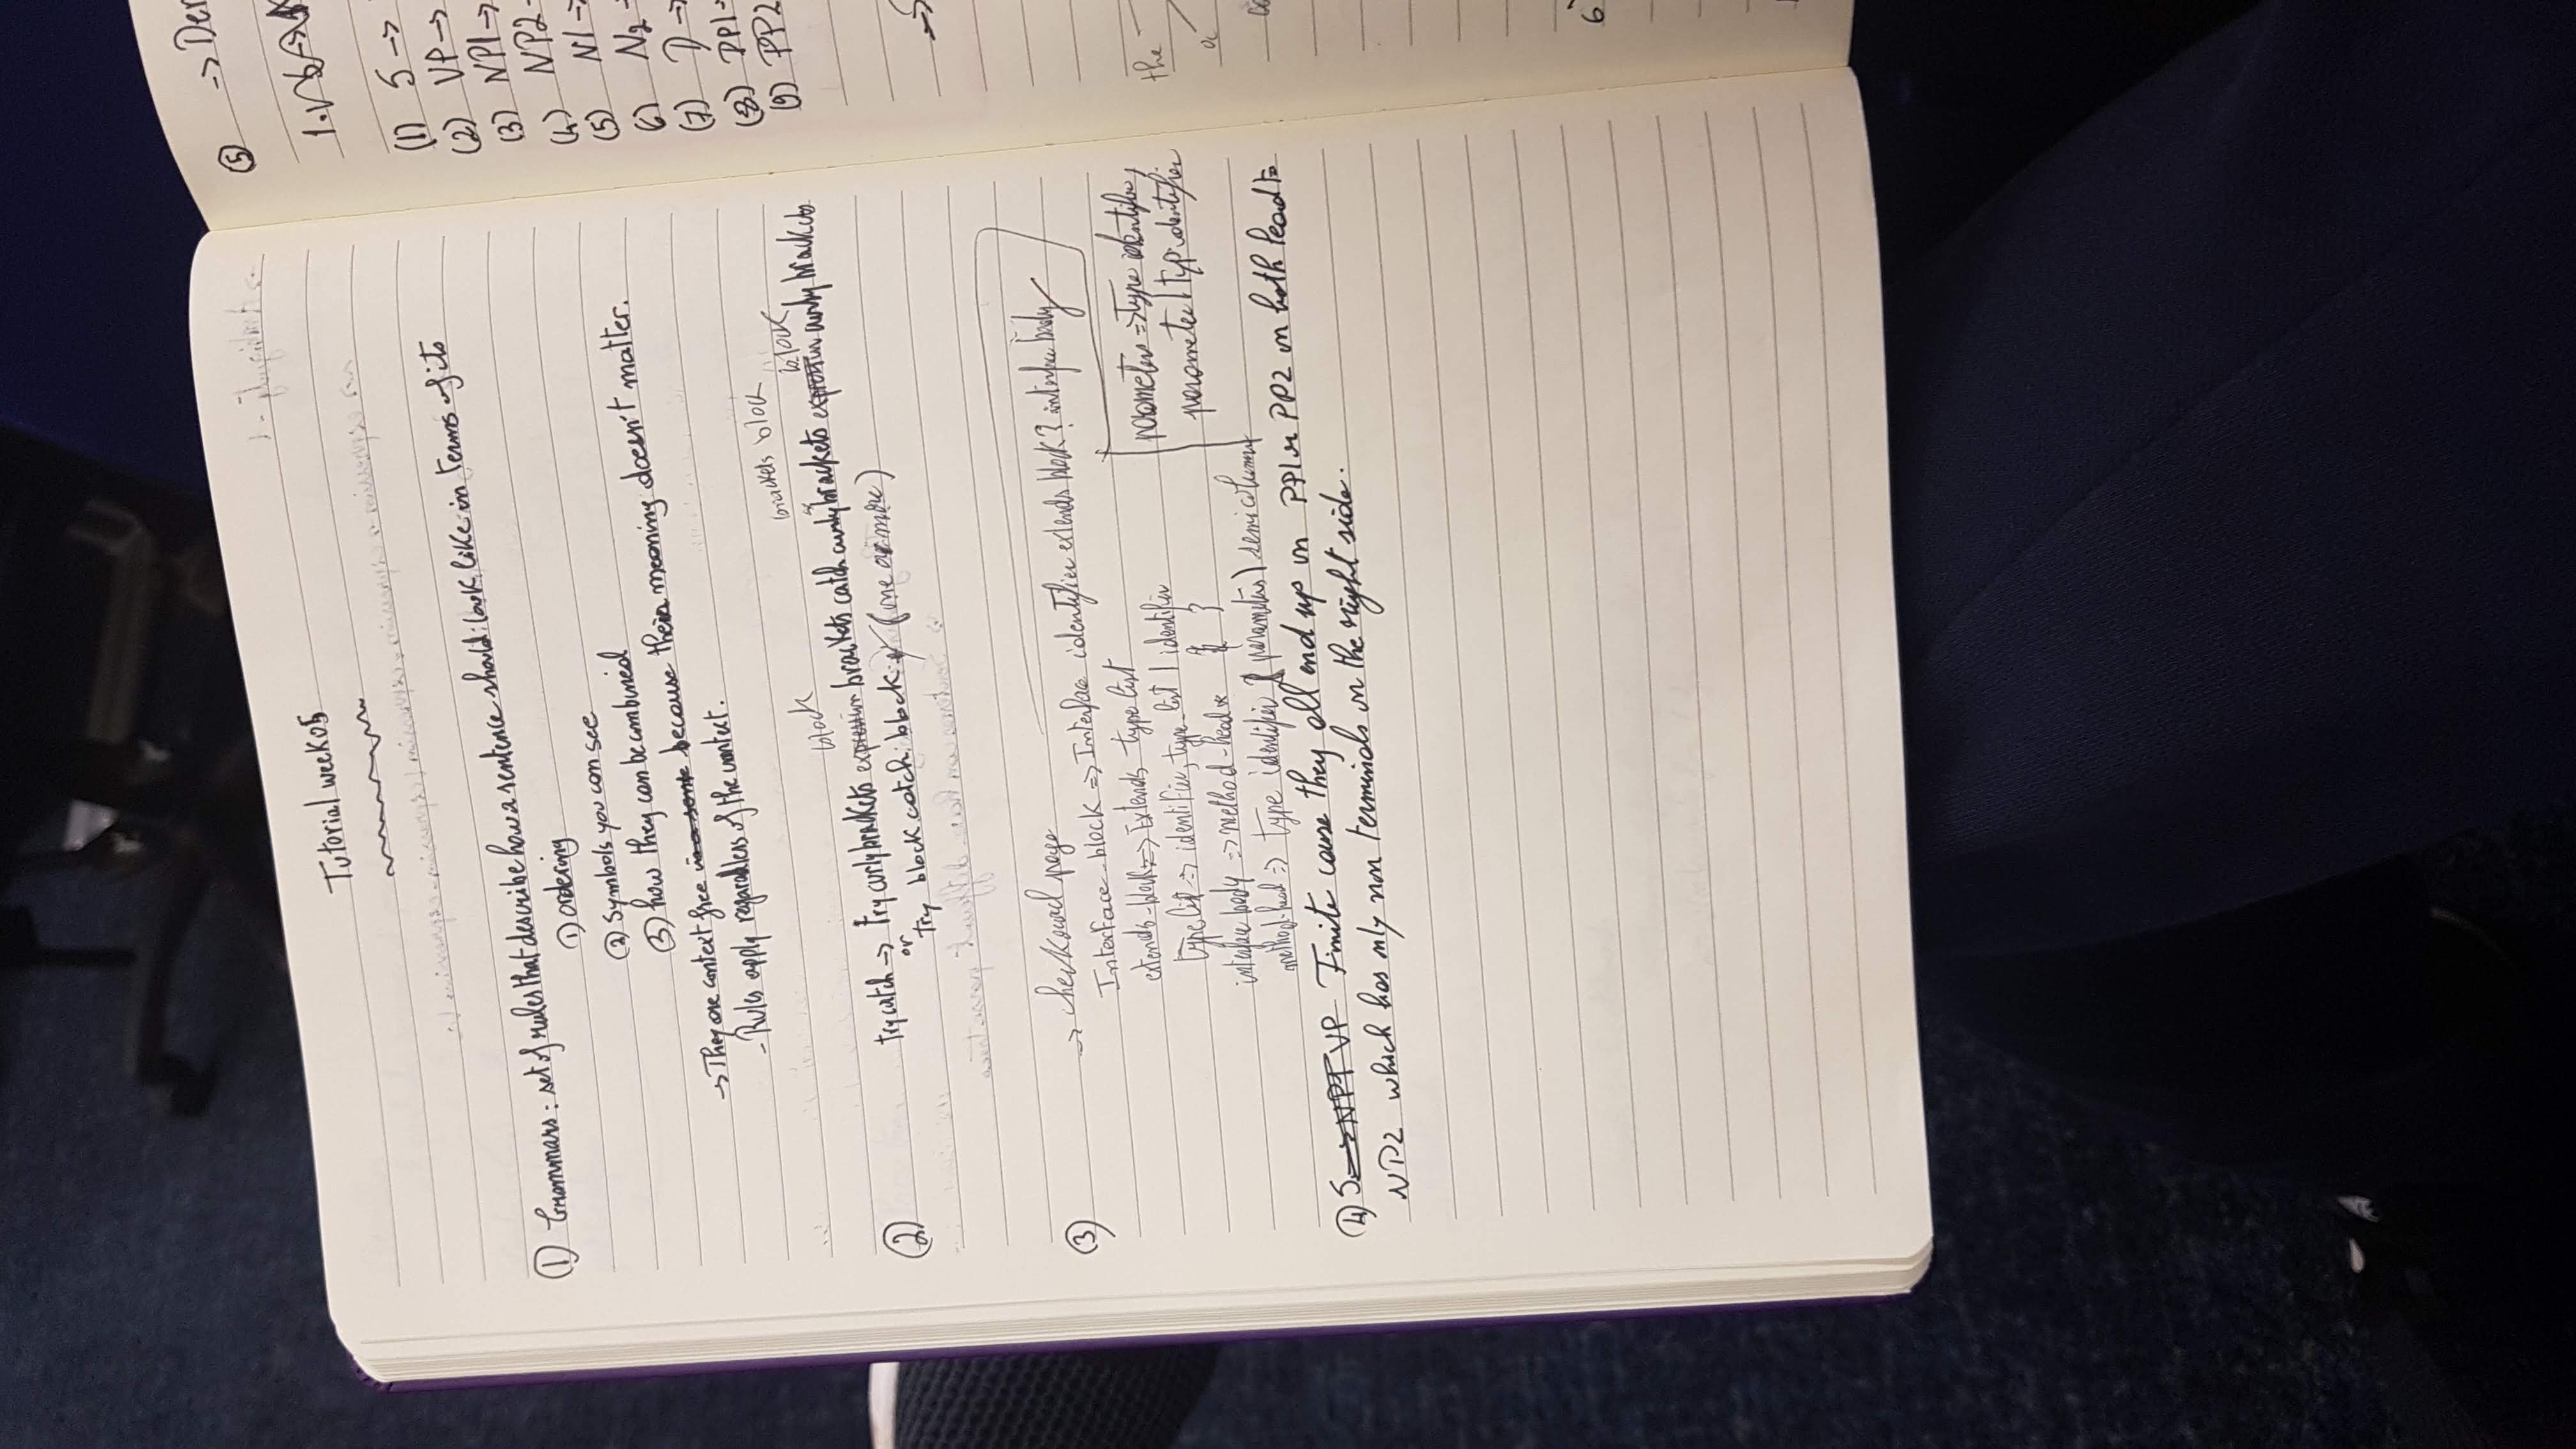 Tutorial week05
① Grammars : set of rules that describe how a sentence should look like in terms of its
① ordering
② Symbols you can see
③ how they can be combined
→ They are context free in a sente because their meaning doesn't matter.
- Rules apply regardless of the context.
block brackets block block
② try catch → try curly brackets expression brackets catch curly brackets expression curly brackets
or try block catch block (one or more)
③ → check page
Interface-block => Interface identifier extends block? interface body
extends-block => Extends type list
type list => identifier, type-list | identifier
interface body => method-head* { }
method-head => type identifier ( parameters) semicolumn
parameters => type identifier,
parameter | typ identifier
④ S → NP1 VP Finite cause they all end up in PP1 or PP2 in both lead to
NP2 which has only non terminals on the right side.
⑤ → Der
1.
(1) S →
(2) VP →
(3) NP1 →
(4) NP2 -
(5) N1 →
(6) N2 -
(7) D →
(8) PP1 -
(9) PP2
the
a
6